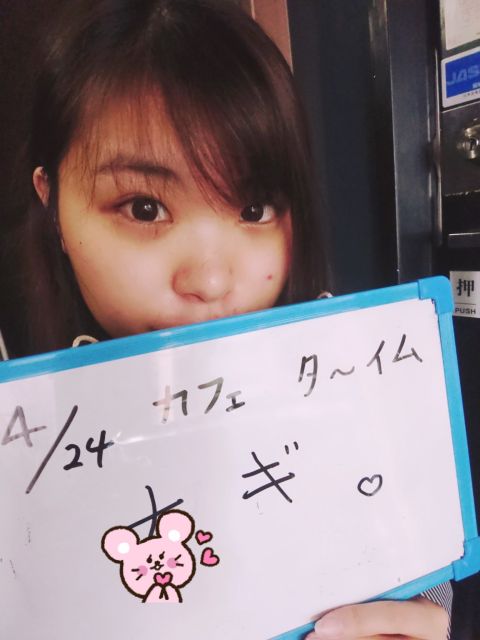 JAS
押
PUSH
4/24 カフェ タ〜イム
ナギ♡